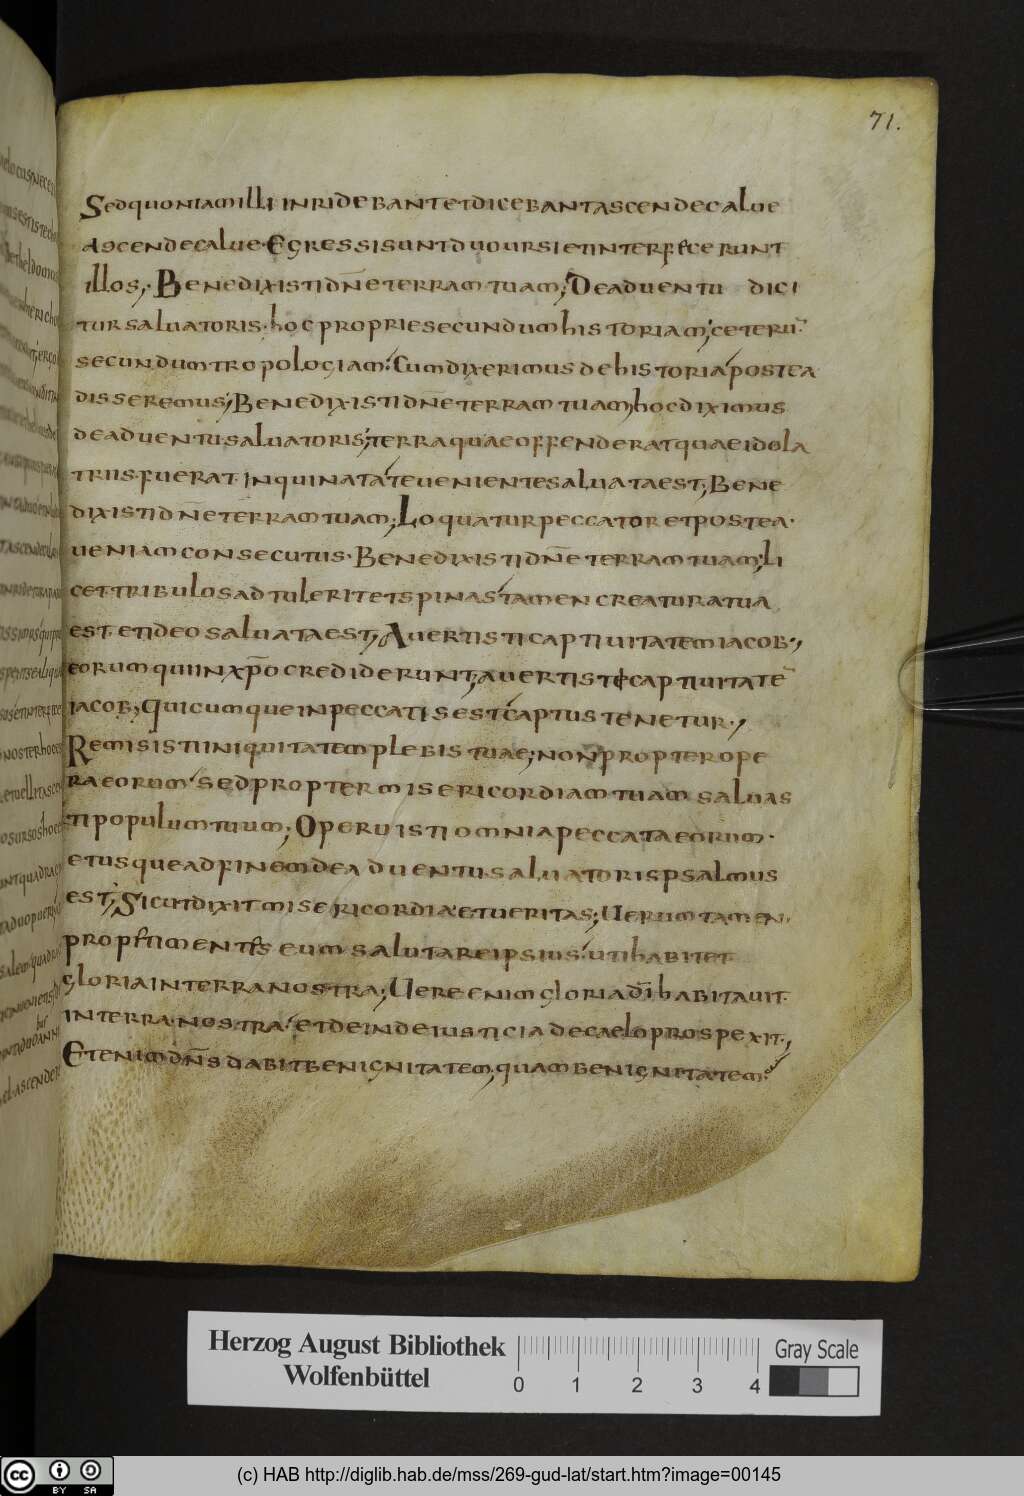 71.
Sed quoniam illi inridebant et dicebant ascende calue
ascende calue. Egressi sunt duo ursi et interfecerunt
illos;. Benedixisti dn̄e terram tuam; De aduentu dici
tur saluatoris. hoc proprie secundum historiam; ceterū
secundum tropologiam. Cum dixerimus de historia postea
disseremus; Benedixisti dn̄e terram tuam hoc diximus
de aduentu saluatoris; terra quae offenderat quae idola
triis fuerat inquinata ta ueniente saluata est; Bene
dixisti dn̄e terram tuam; Loquatur peccator et postea.
ueniam consecutus. Benedixisti dn̄e terram tuam; li
cet tribulos adtulerit et spinas tamen creatura tua
est. et ideo saluata est; Auertisti captiuitatem iacob;
eorum qui in xp̄o crediderunt; auertisti captiuitatē
iacob; Quicumque in peccatis est captus tenetur.;
Remisisti iniquitatem plebis tuae; non propter ope
ra eorum sed propter misericordiam tuam saluas
ti populum tuum; Operuisti omnia peccata eorum.
et usque ad finem de aduentu saluatoris psalmus
est; Sicut dixit misericordia et ueritas; Uerumtamen
prop̄ timentes eum salutare ipsius. uti habitet
gloria in terra nostra; Uere enim gloria dī habitauit.
in terra nostra. et deinde iusticia de caelo prospexit.;
Etenim dn̄s dabit benignitatem, quam benignitatem.
Herzog August Bibliothek
Wolfenbüttel
0 1 2 3 4
Gray Scale
cc BY SA
(c) HAB http://diglib.hab.de/mss/269-gud-lat/start.htm?image=00145